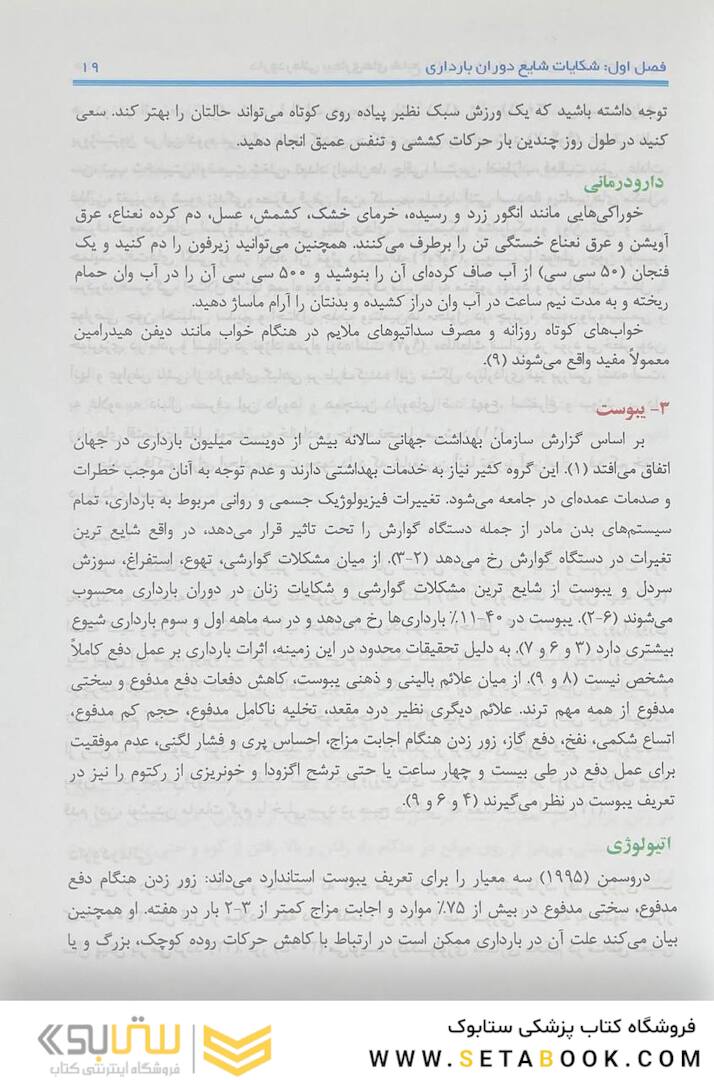 فصل اول: شکایات شایع دوران بارداری ۱۹
توجه داشته باشید که یک ورزش سبک نظیر پیاده روی کوتاه می‌تواند حالتان را بهتر کند. سعی
کنید در طول روز چندین بار حرکات کششی و تنفس عمیق انجام دهید.
دارودرمانی
خوراکی‌هایی مانند انگور زرد و رسیده، خرمای خشک، کشمش، عسل، دم کرده نعناع، عرق
آویشن و عرق نعناع خستگی تن را برطرف می‌کنند. همچنین می‌توانید زیرفون را دم کنید و یک
فنجان (۵۰ سی سی) از آب صاف کرده‌ای آن را بنوشید و ۵۰۰ سی سی آن را در آب وان حمام
ریخته و به مدت نیم ساعت در آب وان دراز کشیده و بدنتان را آرام ماساژ دهید.
خواب‌های کوتاه روزانه و مصرف سداتیوهای ملایم در هنگام خواب مانند دیفن هیدرامین
معمولاً مفید واقع می‌شوند (۹).
۳- یبوست
بر اساس گزارش سازمان بهداشت جهانی سالانه بیش از دویست میلیون بارداری در جهان
اتفاق می‌افتد (۱). این گروه کثیر نیاز به خدمات بهداشتی دارند و عدم توجه به آنان موجب خطرات
و صدمات عمده‌ای در جامعه می‌شود. تغییرات فیزیولوژیک جسمی و روانی مربوط به بارداری، تمام
سیستم‌های بدن مادر از جمله دستگاه گوارش را تحت تاثیر قرار می‌دهد، در واقع شایع ترین
تغیرات در دستگاه گوارش رخ می‌دهد (۲-۳). از میان مشکلات گوارشی، تهوع، استفراغ، سوزش
سردل و یبوست از شایع ترین مشکلات گوارشی و شکایات زنان در دوران بارداری محسوب
می‌شوند (۶-۲). یبوست در ۴۰-۱۱٪ بارداری‌ها رخ می‌دهد و در سه ماهه اول و سوم بارداری شیوع
بیشتری دارد (۳ و ۶ و ۷). به دلیل تحقیقات محدود در این زمینه، اثرات بارداری بر عمل دفع کاملاً
مشخص نیست (۸ و ۹). از میان علائم بالینی و ذهنی یبوست، کاهش دفعات دفع مدفوع و سختی
مدفوع از همه مهم ترند. علائم دیگری نظیر درد مقعد، تخلیه ناکامل مدفوع، حجم کم مدفوع،
اتساع شکمی، نفخ، دفع گاز، زور زدن هنگام اجابت مزاج، احساس پری و فشار لگنی، عدم موفقیت
برای عمل دفع در طی بیست و چهار ساعت یا حتی ترشح اگزودا و خونریزی از رکتوم را نیز در
تعریف یبوست در نظر می‌گیرند (۴ و ۶ و ۹).
اتیولوژی
دروسمن (۱۹۹۵) سه معیار را برای تعریف یبوست استاندارد می‌داند: زور زدن هنگام دفع
مدفوع، سختی مدفوع در بیش از ۷۵٪ موارد و اجابت مزاج کمتر از ۳-۲ بار در هفته. او همچنین
بیان می‌کند علت آن در بارداری ممکن است در ارتباط با کاهش حرکات روده کوچک، بزرگ و یا
فروشگاه کتاب پزشکی ستابوک
WWW.SETABOOK.COM
ستابوک
فروشگاه اینترنتی کتاب